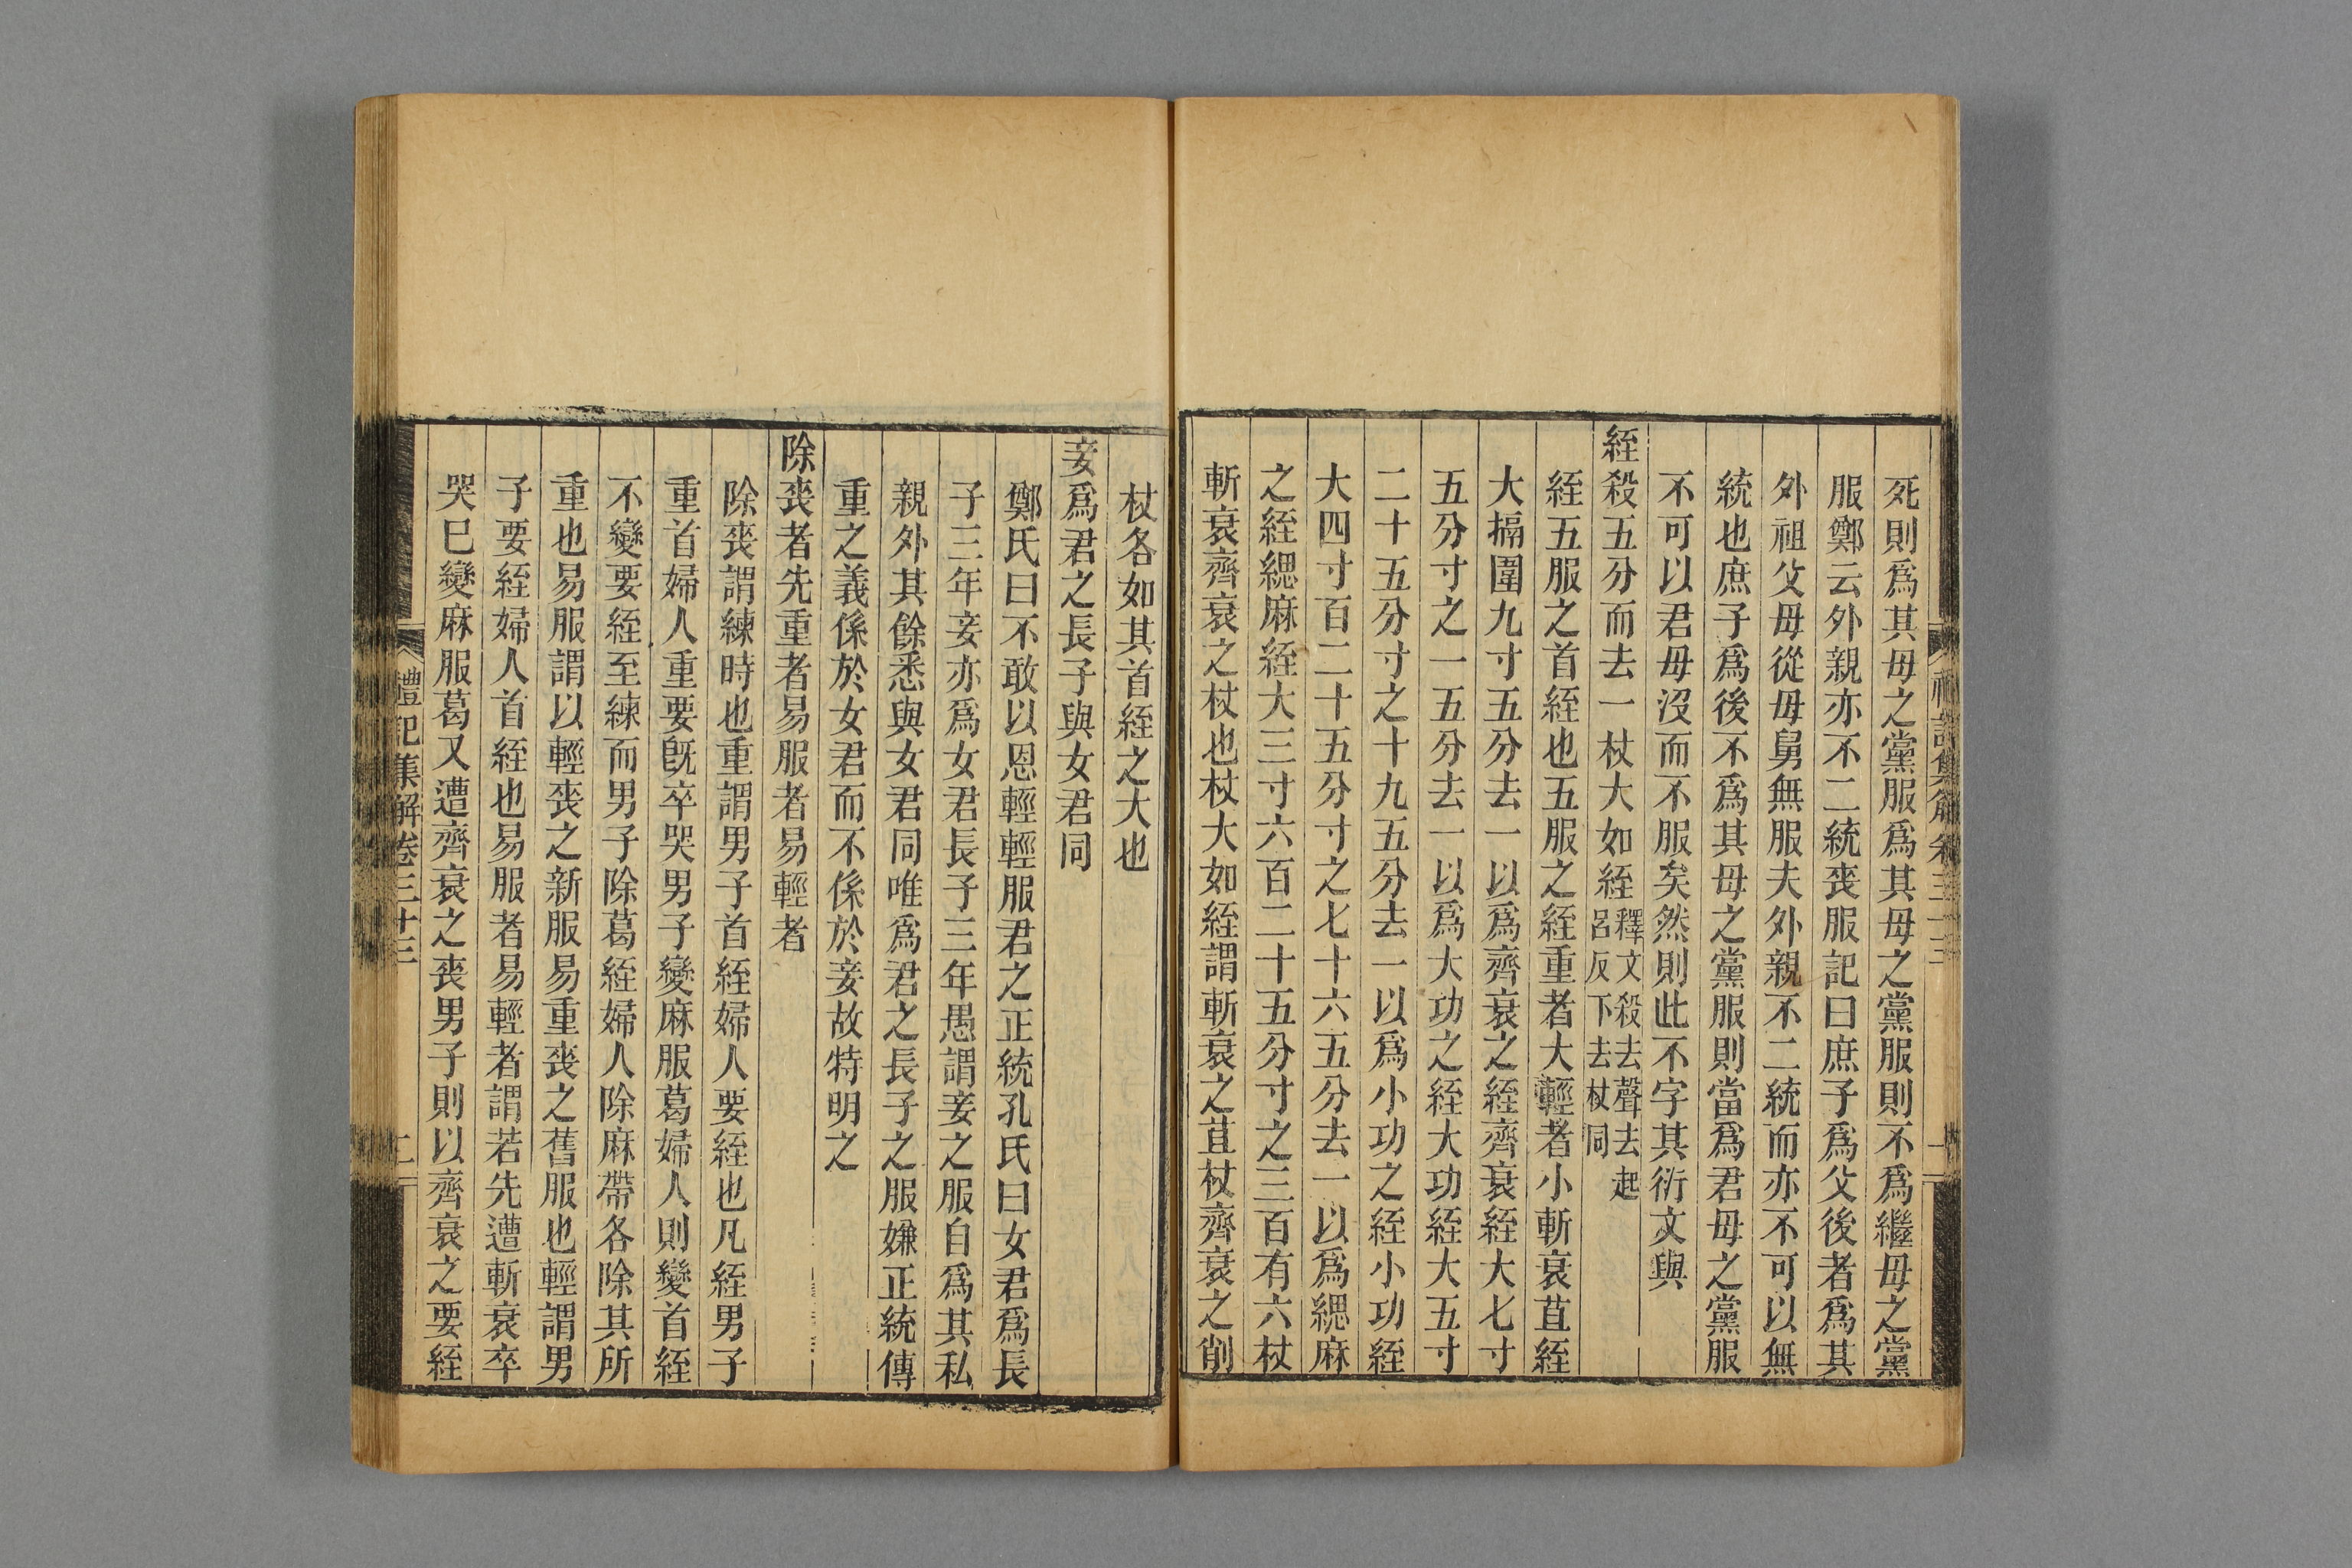 死則爲其母之黨服爲其母之黨服則不爲繼母之黨
服鄭云外親亦不二統喪服記曰庶子爲父後者爲其
外祖父母從母舅無服夫外親不二統而亦不可以無
統也庶子爲後不爲其母之黨服則當爲君母之黨服
不可以君母沒而不服矣然則此不字其衍文與
絰殺五分而去一杖大如絰釋文殺去聲去起
呂反下去杖同
絰五服之首絰也五服之絰重者大輕者小斬衰苴絰
大搹圍九寸五分去一以爲齊衰之絰齊衰絰大七寸
五分寸之一五分去一以爲大功之絰大功絰大五寸
二十五分寸之十九五分去一以爲小功之絰小功絰
大四寸百二十五分寸之七十六五分去一以爲緦麻
之絰緦麻絰大三寸六百二十五分寸之三百有六杖
斬衰齊衰之杖也杖大如絰謂斬衰之苴杖齊衰之削
杖各如其首絰之大也
妾爲君之長子與女君同
鄭氏曰不敢以恩輕輕服君之正統孔氏曰女君爲長
子三年妾亦爲女君長子三年愚謂妾之服自爲其私
親外其餘悉與女君同唯爲君之長子之服嫌正統傳
重之義係於女君而不係於妾故特明之
除喪者先重者易服者易輕者
除喪謂練時也重謂男子首絰婦人要絰也凡絰男子
重首婦人重要旣卒哭男子變麻服葛婦人則變首絰
不變要絰至練而男子除葛絰婦人除麻帶各除其所
重也易服謂以輕喪之新服易重喪之舊服也輕謂男
子要絰婦人首絰也易服者易輕者謂若先遭斬衰卒
哭巳變麻服葛又遭齊衰之喪男子則以齊衰之要絰
禮記集解卷三十三
二